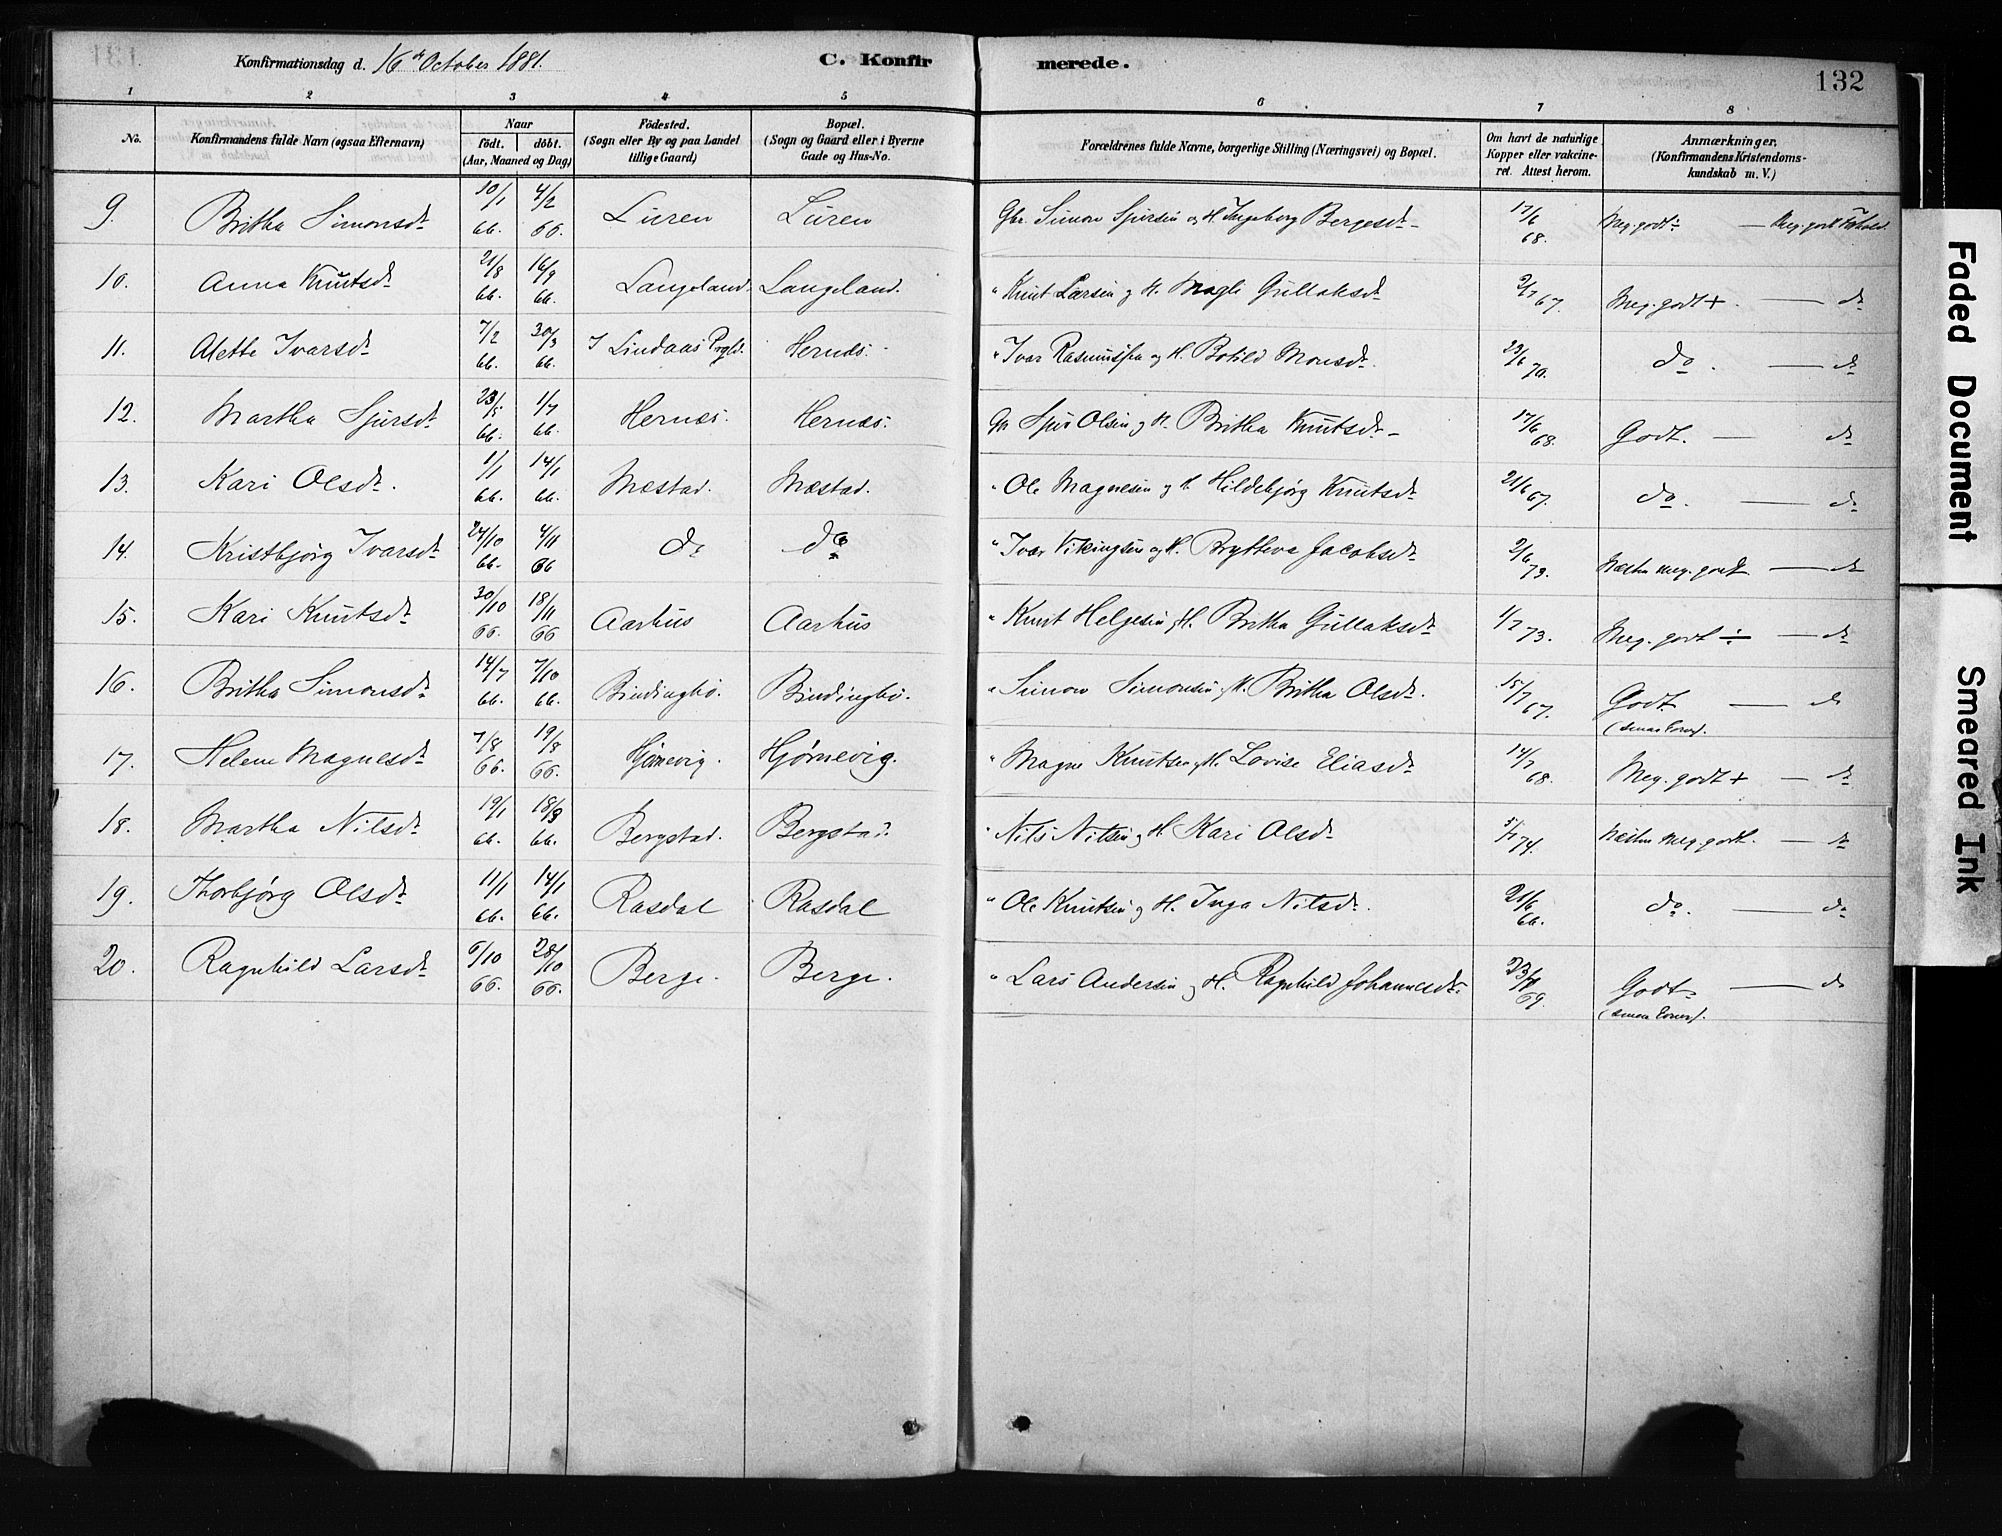 Konfirmationsdag d. 16de October 1881. C. Konfir merede. 132
1 2 3 4 5 6 7 8
No. Konfirmandens fulde Navn (ogsaa Efternavn) Naar födt. döbt. (Aar, Maaned og Dag) Födested. (Sogn eller By og paa Landet tillige Gaard) Bopæl. (Sogn og Gaard eller i Byerne Gade og Hus-No. Forældrenes fulde Navne, borgerlige Stilling (Næringsvei) og Bopæl. Om havt de naturlige Kopper eller vakcineret. Attest herom. Anmærkninger. (Konfirmandens Kristendomskundskab m. V.)
9. Britha Simonsdr 10/1 66. 4/2 66. Luren Luren Gbr. Simon Sjursen og H. Ingeborg Bergesdr 17/6 68. Meg. godt — Meg. godt Forhold
10. Anna Knutsdr 21/8 66. 16/9 66. Langeland. Langeland. " Knut Larsen og H. Magli Gullaksdr 2/7 67. Meg. godt + — do
11. Alette Ivarsdr 7/2 66. 30/3 66. I Lindaas Prgld. Hernæs. " Ivar Rasmussen og H. Botild Monsdr. 23/6 70. do. — do
12. Martha Sjursdr 23/5 66. 1/7 66. Hernæs. Hernæs. Gbr Sjur Olsen og H. Britha Knutsdr 17/6 68. Godt. — do
13. Kari Olsdr. 1/1 66. 14/1 66. Mæstad. Mæstad. " Ole Magnesen og H. Hildebjörg Knutsdr 21/6 67. do. — do
14. Kristbjörg Ivarsdr 24/10 66. 4/11 66 do do " Ivar Vikingsen og H. Brytteva Jacobsdr 2/6 73. Næsten meg. godt — do
15. Kari Knutsdr 30/10 66. 18/11 66 Aarhus Aarhus " Knut Helgesen og H. Britha Gullaksdr 1/7 73. Meg. godt ÷ — do
16. Britha Simonsdr 14/7 66. 7/10 66. Bindingbø. Bindingbø. " Simon Simonsen og H. Britha Olsdr. 15/7 67. Godt — do
17. Helene Magnesdr 7/8 66. 19/8 66. Hjørnevig. Hjørnevig. " Magne Knutsen og H. Lovise Eliasdr 14/7 68. Meg. godt + — do
18. Martha Nilsdr 19/1 66. 18/3 66. Bergstad. Bergstad. " Nils Nilsen og H. Kari Olsdr 5/7 74. Næsten meg. godt. — do
19. Thorbjörg Olsdr 11/1 66. 14/1 66. Rasdal Rasdal " Ole Knutsen og H. Inga Nilsdr. 21/6 66. do. — do
20. Ragnhild Larsdr 6/10 66. 28/10 66. Berge. Berge. " Lars Andersen og H. Ragnhild Johannesdr. 69. Godt — do
Faded Document
Smeared Ink